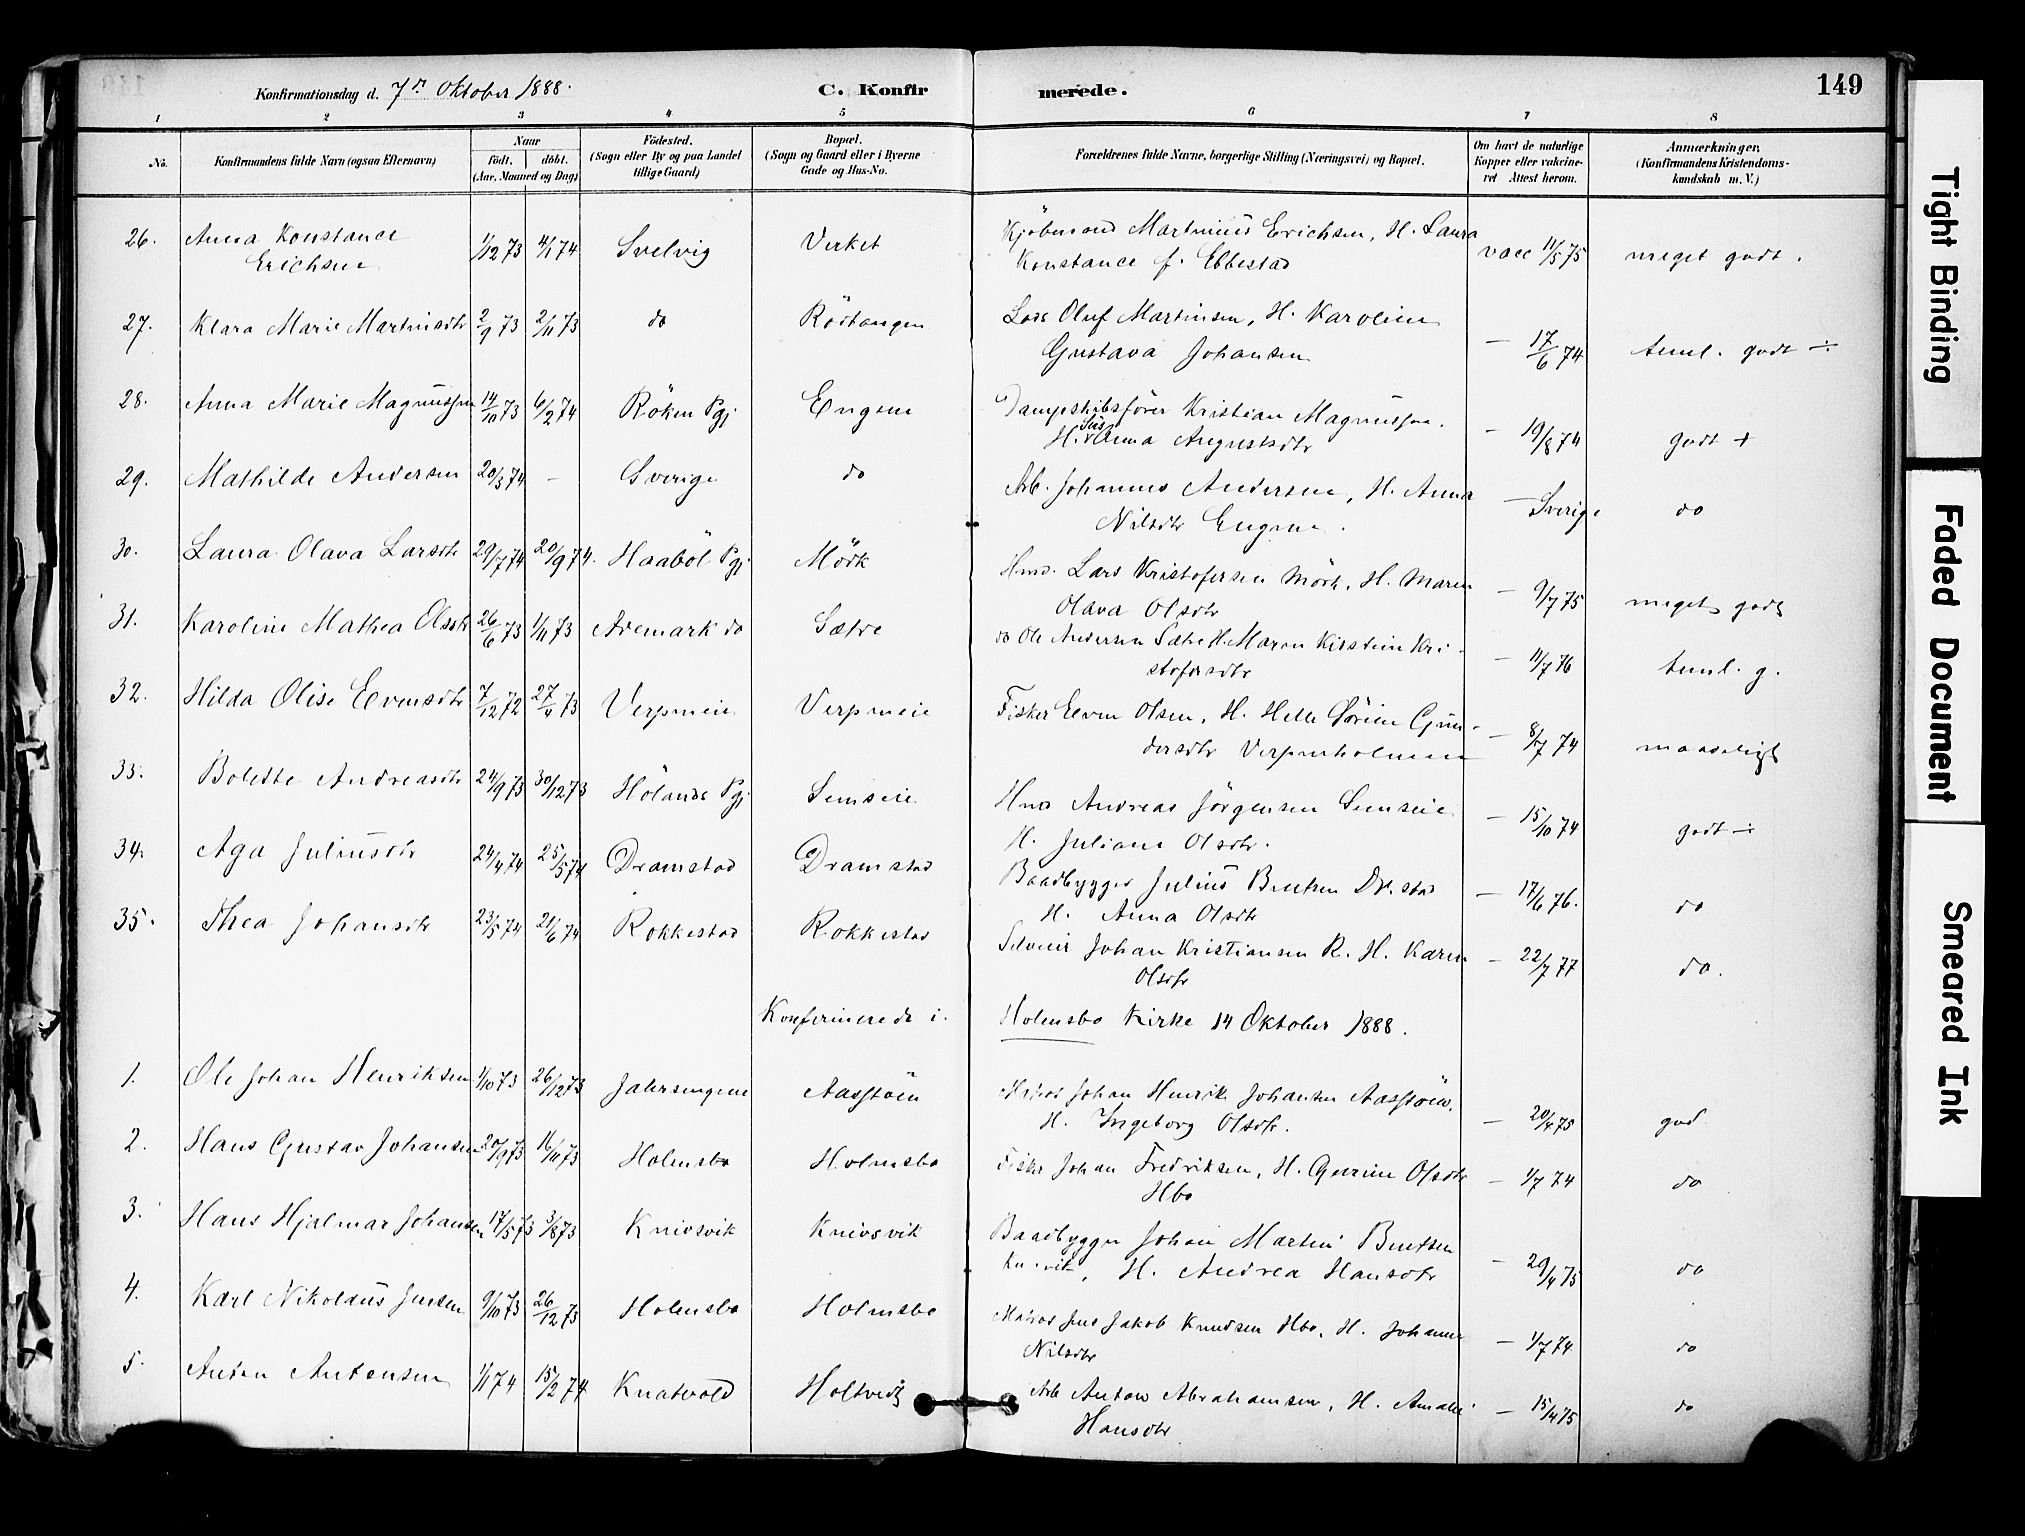 149
Konfirmationsdag d. 7de Oktober 1888.
C. Konfirmerede.
1 2 3 4 5 6 7 8
No.
Konfirmandens fulde Navn (ogsaa Efternavn)
Naar
födt. döbt.
(Aar, Maaned og Dag)
Födested.
(Sogn eller By og paa Landet
tillige Gaard)
Bopæl.
(Sogn og Gaard eller i Byerne
Gade og Hus-No.
Forældrenes fulde Navne, borgerlige Stilling (Næringsvei) og Bopæl.
Om havt de naturlige
Kopper eller vakcine-
ret Attest herom.
Anmærkninger.
(Konfirmandens Kristendoms-
kundskab m. V.)
26. Anna Konstance Erichsen 1/12 73 4/1 74 Svelvig Verket Kjöbmand Martinius Erichsen, H. Laura
Konstance f. Ebbestad vacc 11/5 75 meget godt.
27. Klara Marie Martinsdtr 2/9 73 2/11 73 do Rödtangen Lods Oluf Martinsen, H. Karoline
Gustava Johansen — 17/6 74 teml. godt ÷
28. Anna Marie Magnussen 14/10 73 6/2 74 Röken Pgj Engene Dampskibsförer Kristian Magnussen.
H. Anna Augustsdtr — 19/8 74 godt +
29. Mathilde Andersen 20/3 74 — Sverige do Arb. Johannes Andersen, H. Anna
Nilsdtr Engene. — Sverige do
30. Laura Olava Larsdtr 29/7 74 20/9 74. Haaböl Pgj Mörk Hmd. Lars Kristofersen Mörk, H. Maren
Olava Olsdtr — 9/7 75 meget godt
31. Karoline Mathea Olsdtr 26/6 73 1/11 73 Aremark do Sætre do Ole Andersen Sætre H. Maren Kirstine Kri-
stofersdtr — 11/7 76 teml. g.
32. Hilda Olise Evensdtr 7/12 72 27/4 73 Verpmeie Verpmeie Fisker Even Olsen, H. Helle Sörine Gun-
dersdtr Verpenholmen — 8/7 74 maadeligt
33. Bolette Andreasdtr 24/9 73 30/12 73 Hölands Pgj Semseie Hmd Andreas Jörgensen Semseie
H. Juliane Olsdtr. — 15/10 74 godt ÷
34. Aga Juliusdtr 24/4 74 25/5 74 Dramstad Dramstad Baadbygger Julius Bentsen Dr.stad
H. Anna Olsdtr — 17/6 76. do
35. Thea Johansdtr 23/5 74 21/6 74 Rokkestad Rokkestad Selveier Johan Kristiansen R. H. Karen
Olsdtr — 22/7 77 do.
Konfirmerede i Holmsbo Kirke 14 Oktober 1888.
1. Ole Johan Henriksen 1/10 73 26/12 73 Jalersengene Aasstöen Matros Johan Henrik Johansen Aasstöen.
H. Ingeborg Olsdtr. — 20/4 75 god.
2. Hans Gustav Johansen 20/9 73 16/11 73 Holmsbo Holmsbo Fisker Johan Fredriksen, H. Gurine Olsdtr
Hbo — 1/7 74 do
3. Hans Hjalmar Johansen 17/5 73 3/8 73 Knivsvik Knivsvik Baadbygger Johan Martin Bentsen
H. Andrea Hansdtr — 29/4 75 do
4. Karl Nikolaus Jensen 9/10 73 26/12 73 Holmsbo Holmsbo Matros Jens Jakob Knudsen Hbo, H. Johanne
Nilsdtr — 1/7 74 do
5. Anton Antonsen 1/1 74 15/2 74 Knatvold Holtvedt Arb Anton Abrahamsen, H. Amalie
Hansdtr — 15/4 75 do
Tight Binding
Faded Document
Smeared Ink